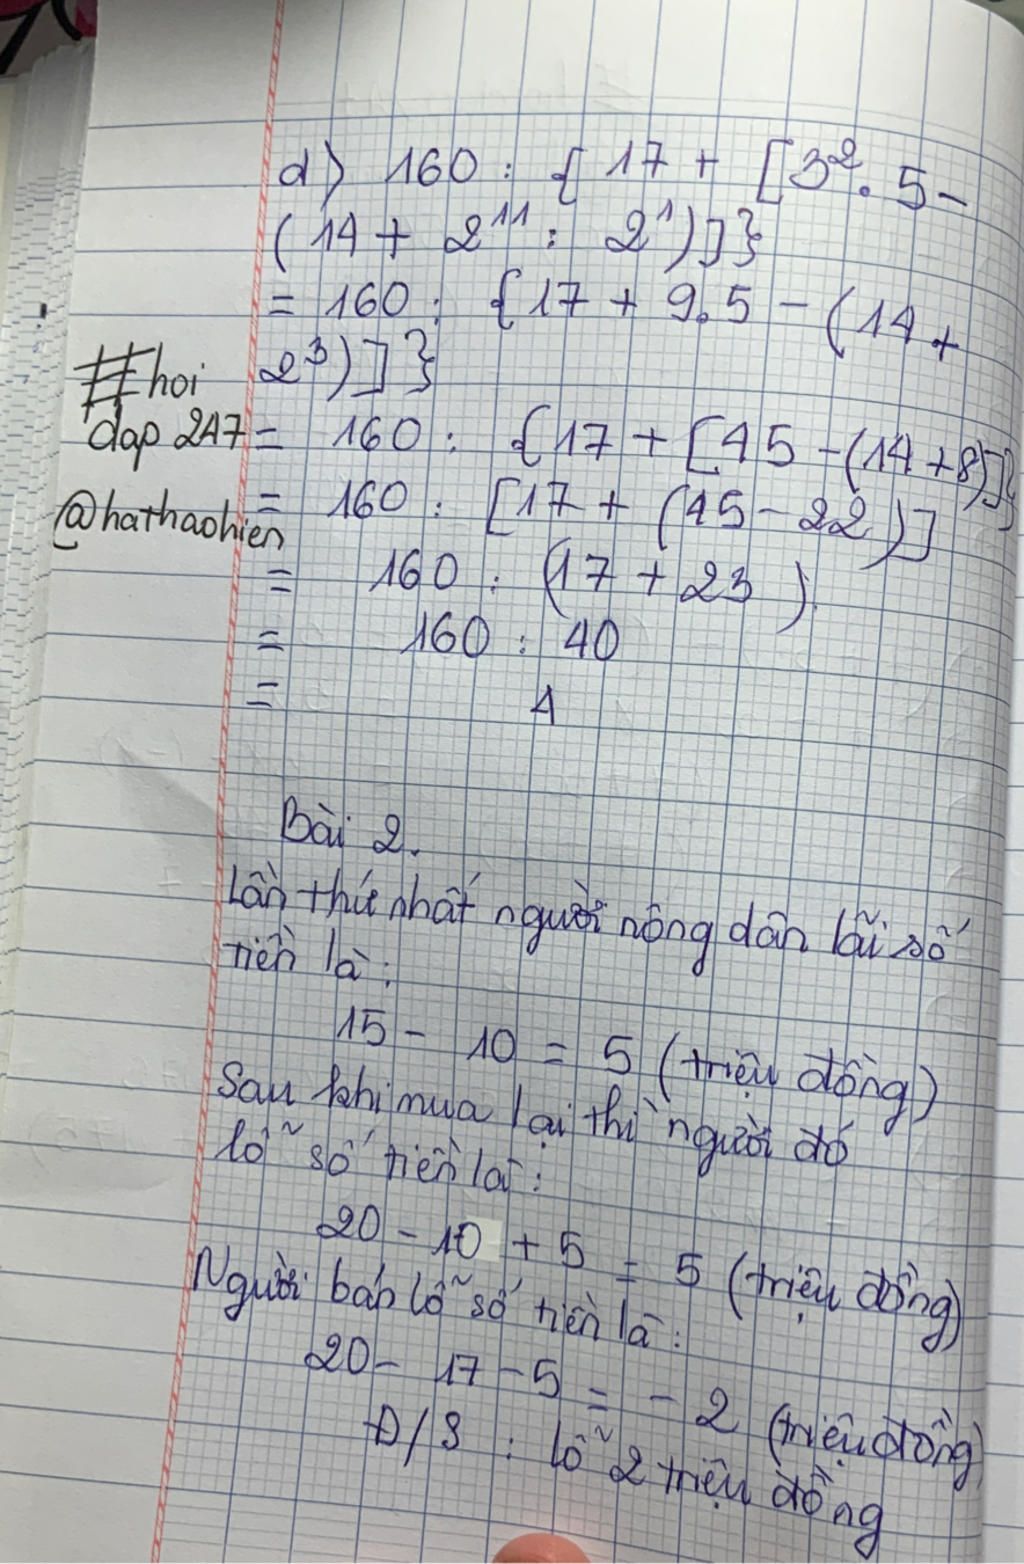 d) 160 : { 17 + [3². 5 -
(14 + 2¹¹ : 2¹)]}
= 160 : {17 + 9.5 - (14 +
2³)]}
= 160 : {17 + [45 - (14 + 8)]}
= 160 : [17 + (45 - 22)]
= 160 : (17 + 23)
= 160 : 40
= 4
#hoi
dap 247
@hathaohien
Bài 2.
Lần thứ nhất người nông dân lãi số
tiền là :
15 - 10 = 5 (triệu đồng)
Sau khi mua lại thì người đó
lỗ số tiền là :
20 - 10 + 5 = 5 (triệu đồng)
Người bán lỗ số tiền là :
20 - 17 - 5 = - 2 (triệu đồng)
Đ/S : lỗ 2 triệu đồng